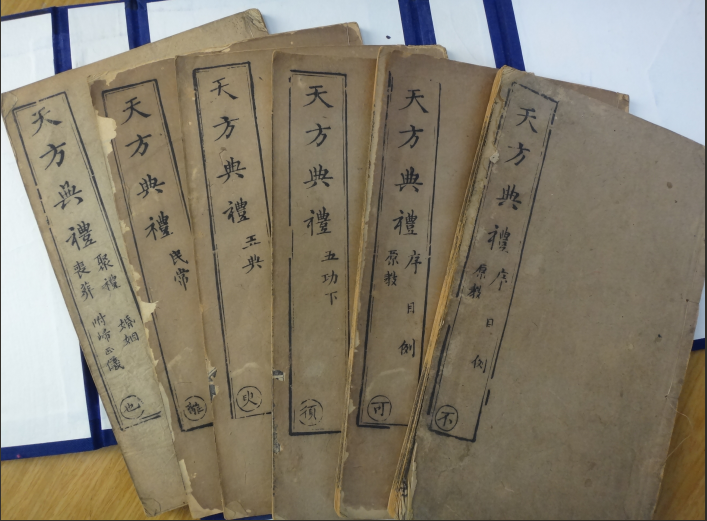 天方典禮
序 目 例
原教
不
天方典禮
序 目 例
原教
可
天方典禮
五功下
須
天方典禮
五典
臾
天方典禮
民常
離
天方典禮
聚禮 婚姻
喪葬 附歸正儀
也